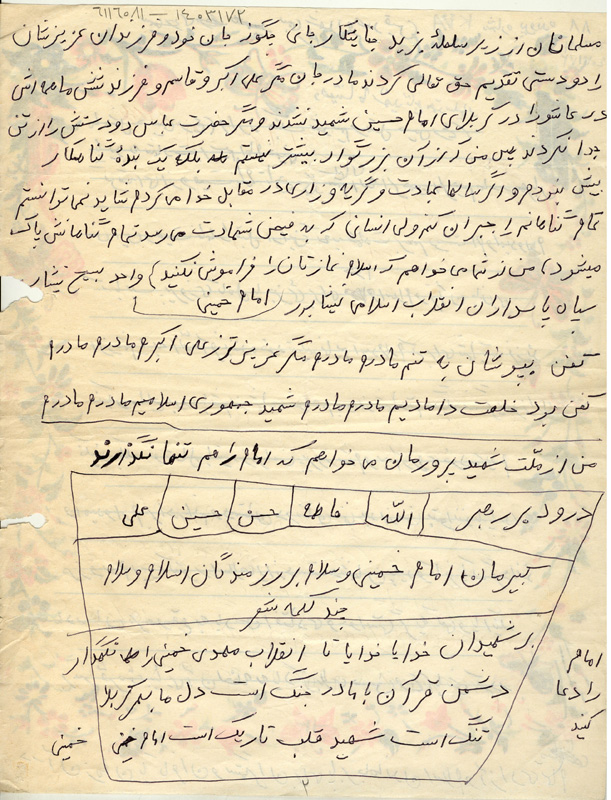 ۱۴۰۳۱۷۲ — ۶۱۱۶۵۰۱۱
مسلمانان از زیر سلطهٔ یزید جنایتکار بانی چگونه جان خود و فرزندان عزیزشان
را دو دستی تقدیم حق تعالی کردند مادر جان مگر علی اکبر و قاسم و فرزند شش ماهه اش
در عاشورا در کربلای امام حسین شهید نشدند و مگر حضرت عباس دو دستش را از تن
جدا نکردند پس من که از آن بزرگوار بیشتر نیستم بلکه یک بندهٔ گناهکار
بیش نبودم و اگر سالها عبادت و گریه و زاری در مقابل خدا می کردم شاید نمی توانستم
تمام گناهانم را جبران کنم ولی انسانی که به فیض شهادت می رسد تمام گناهانش پاک
میشود) من از شما می خواهم که اسلام نمازتان را فراموش نکنید) واحد بسیج
سپاه پاسداران انقلاب اسلامی (امام خمینی)
کفن بپوشان به تنم مادرم مادرم مگر عزیزتر ز علی اکبرم مادرم مادرم
کفن بود خلعت دامادیم مادرم مادرم شهید جمهوری اسلامیم مادرم مادرم
من از ملّت شهید پرورمان می خواهم که امام را هم تنها نگذارند
درود بر رهبر الله فاطمه حسن حسین علی
کبیرمان امام خمینی و سلام بر رزمندگان اسلام و سلام
چند کلمه شعر
بر شهیدان خدایا خدایا تا انقلاب مهدی خمینی را نگهدار
دشمن قرآن با ما در جنگ است دل ما بهر کربلا
تنگ است شهید قلب تاریک است امام خمینی خمینی
امام
را دعا
کنید
۲